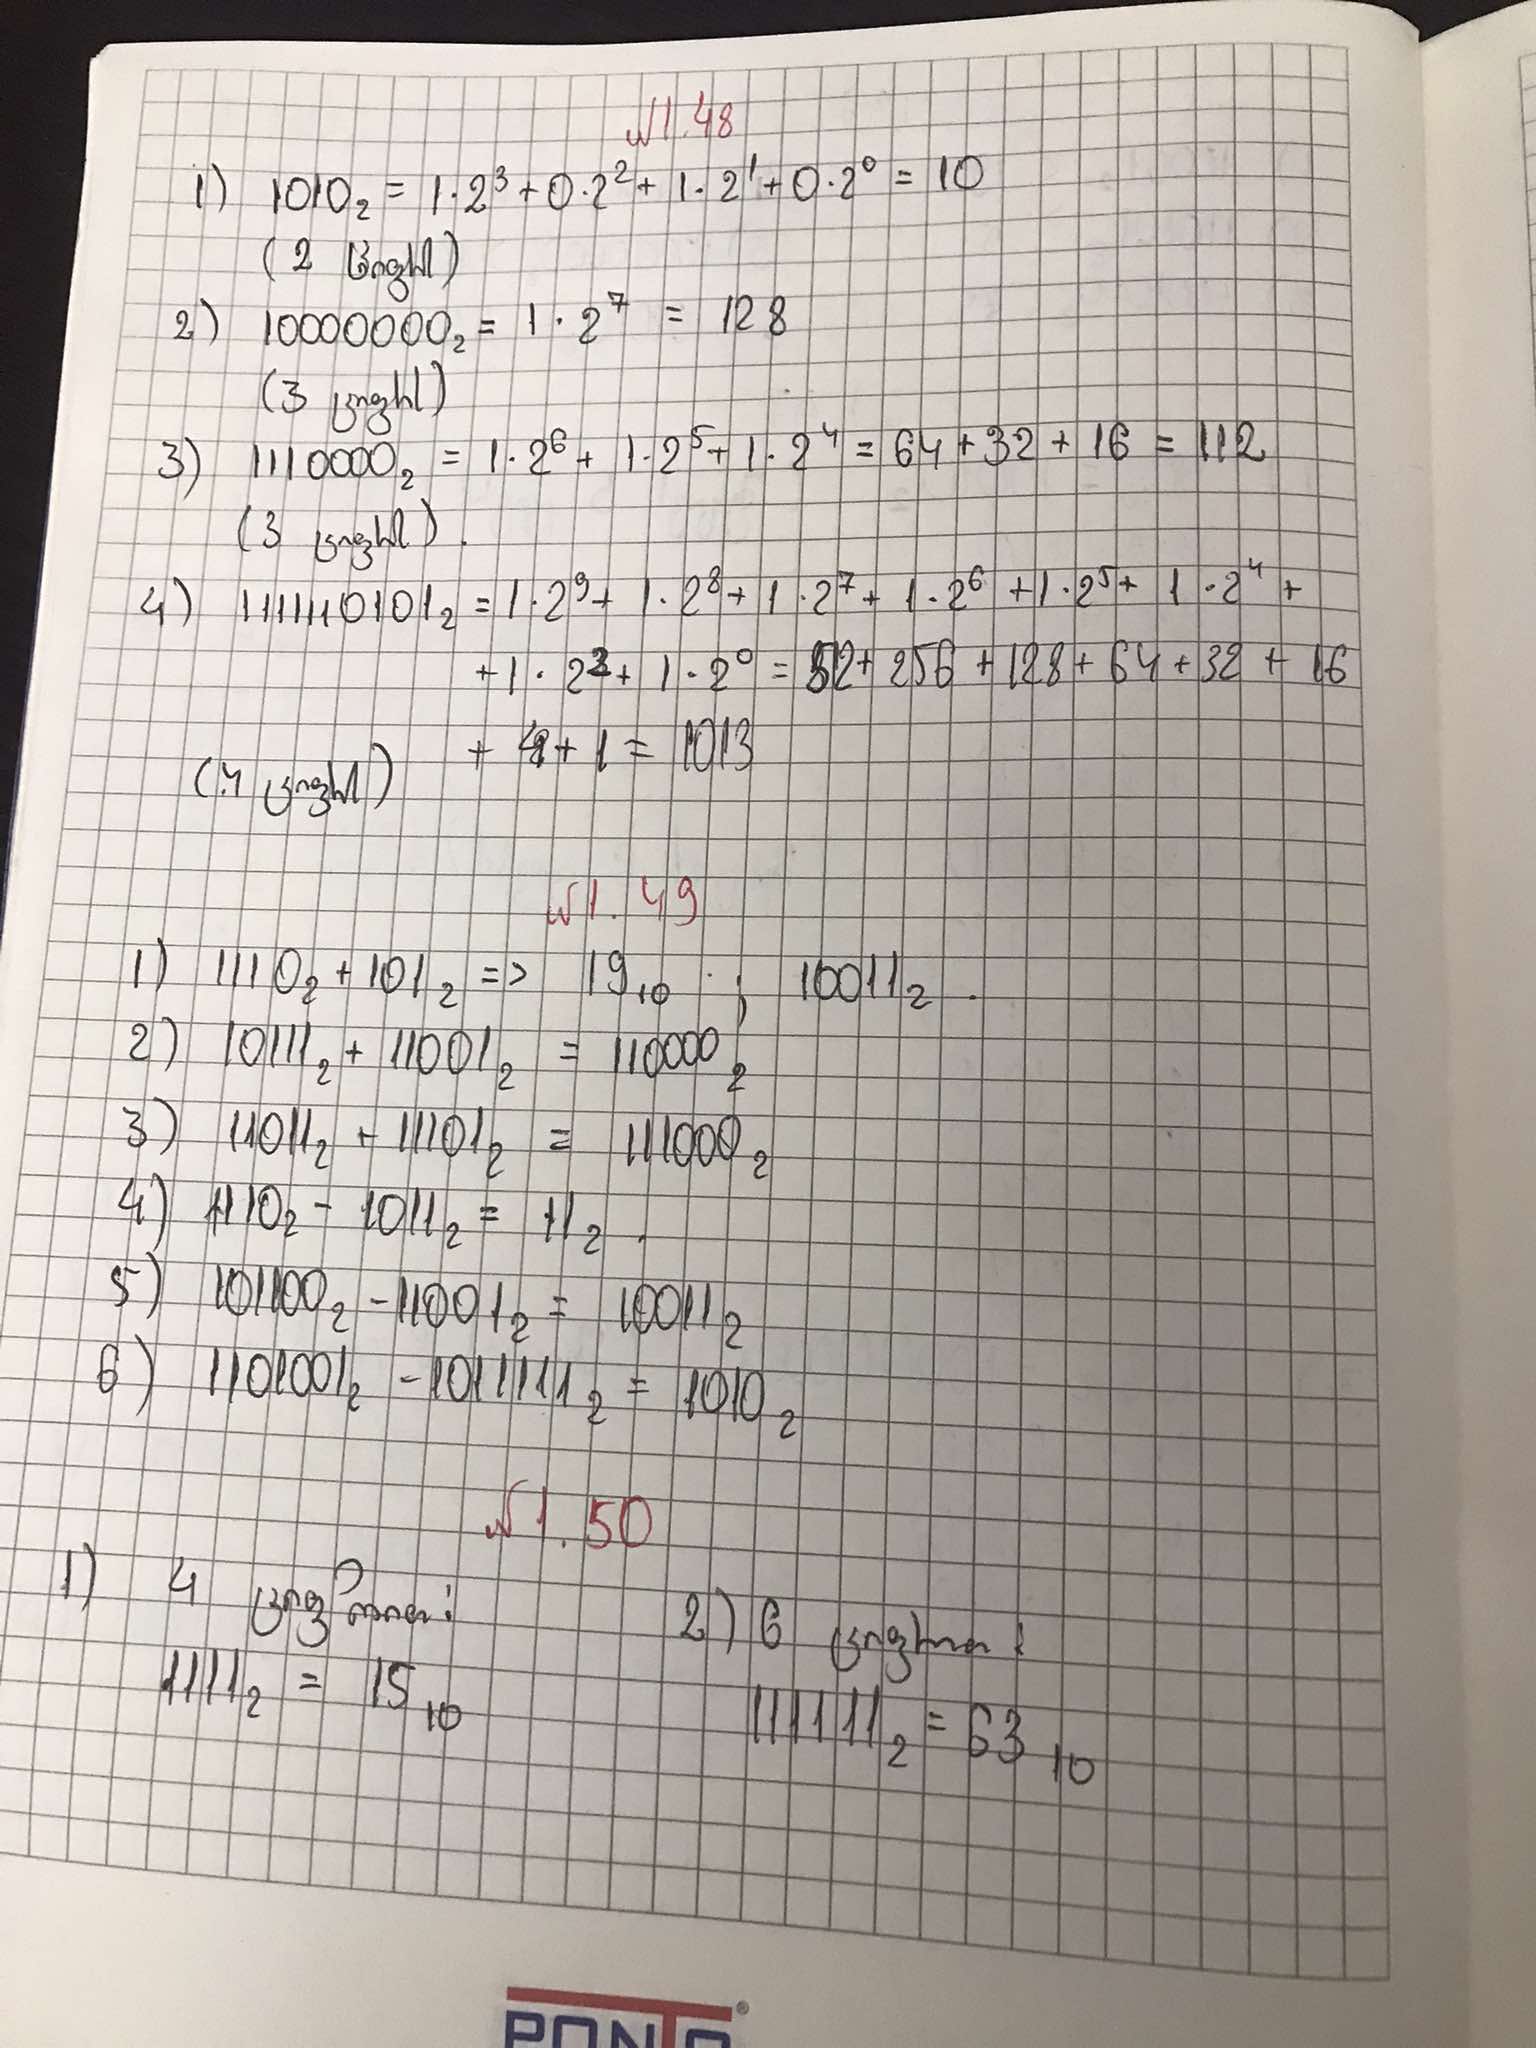 №1.48
1) 1010₂ = 1·2³ + 0·2² + 1·2¹ + 0·2⁰ = 10
(2 ციფრი)
2) 10000000₂ = 1·2⁷ = 128
(3 ციფრი)
3) 1110000₂ = 1·2⁶ + 1·2⁵ + 1·2⁴ = 64 + 32 + 16 = 112
(3 ციფრი).
4) 1111110101₂ = 1·2⁹ + 1·2⁸ + 1·2⁷ + 1·2⁶ + 1·2⁵ + 1·2⁴ +
+ 1·2² + 1·2⁰ = 512 + 256 + 128 + 64 + 32 + 16
+ 4 + 1 = 1013
(4 ციფრი)
№1.49
1) 1110₂ + 101₂ => 19₁₀ ; 10011₂.
2) 10111₂ + 11001₂ = 110000₂
3) 11011₂ + 11101₂ = 111000₂
4) 1110₂ - 1011₂ = 11₂.
5) 101100₂ - 11001₂ = 10011₂
6) 1101001₂ - 1011111₂ = 1010₂
№1.50
1) 4 ციფრით: 2) 6 ციფრით:
1111₂ = 15₁₀ 111111₂ = 63₁₀
PONTO